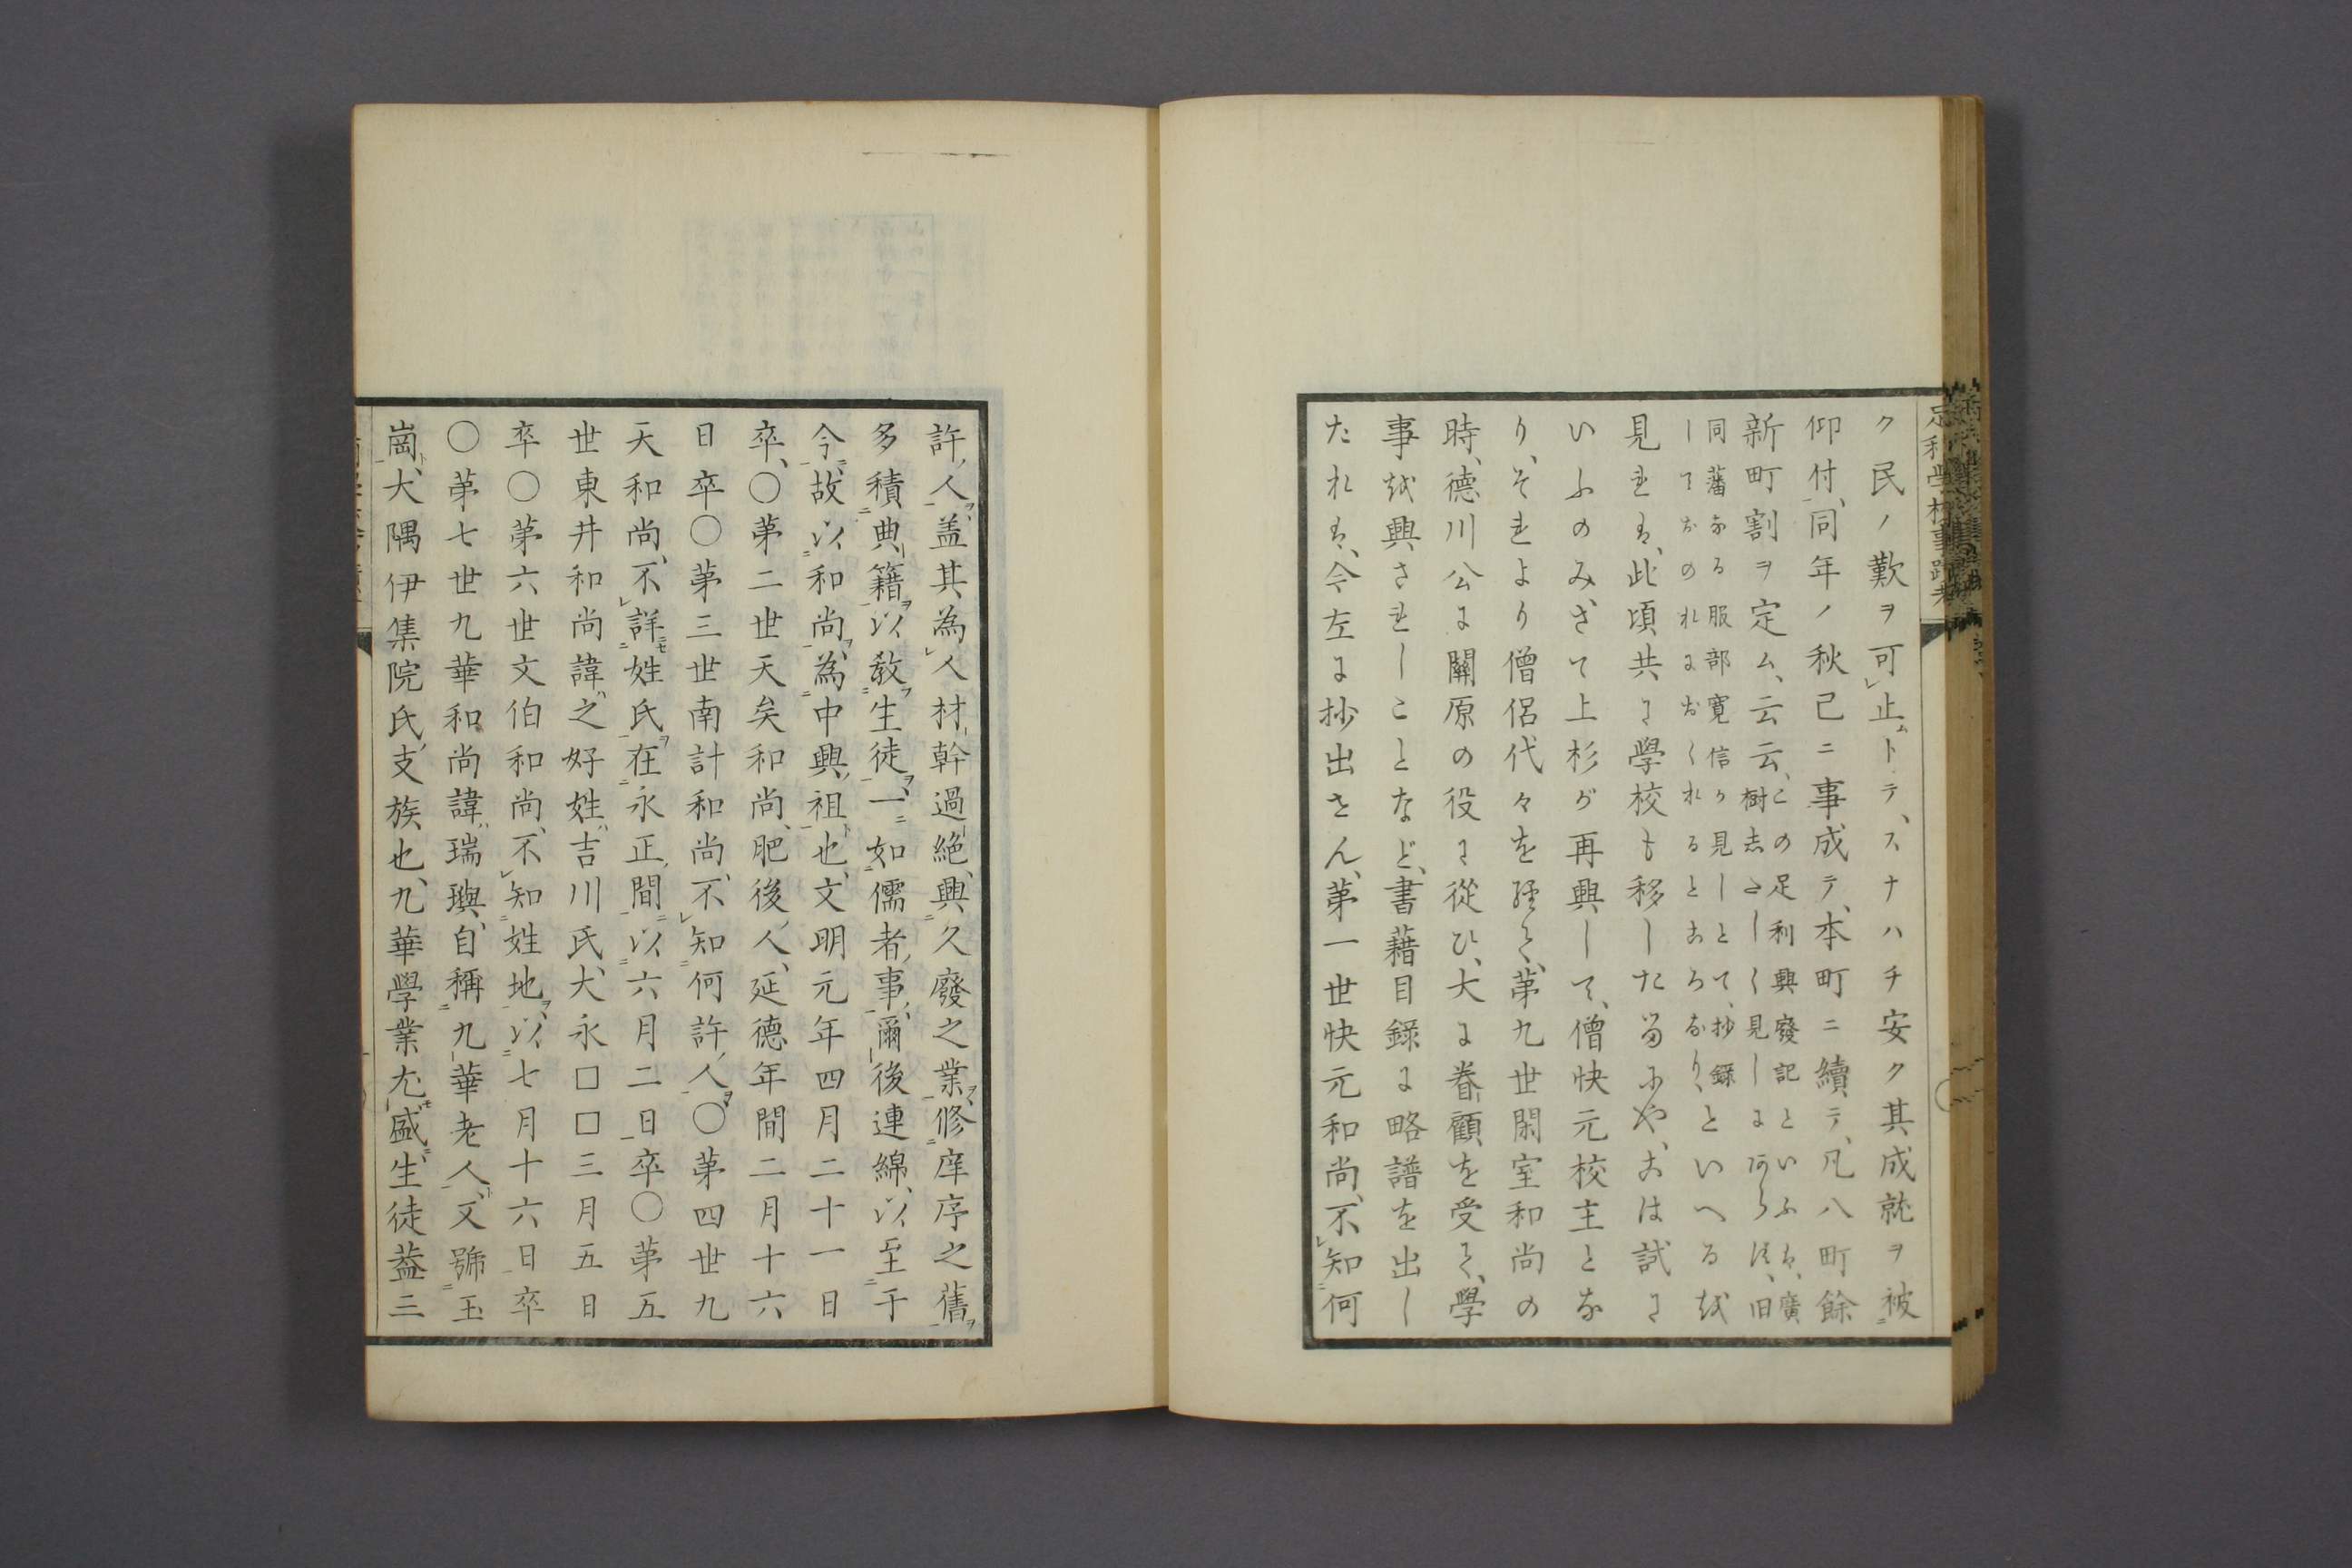 足利學校事蹟考
ク民ノ歎ヲ可止ムトテ、スナハチ安ク其成就ヲ被
仰付、同年ノ秋已ニ事成テ、本町ニ續テ、凡八町餘
新町割ヲ定ム、云云、
この足利興廢記といふは、廣
樹志たしく見しにあらず、旧
同藩なる服部寛信が見しとて、抄録
しておのれにおくれるところなり、
といへるを
見れば、此頃共に學校も移したるにや、こは試に
いふのみ、さて上杉が再興して、僧快元校主とな
り、それより僧侶代々を經て、第九世閑室和尚の
時、德川公に關原の役に從ひ、大に眷顧を受て、學
事を興されしことなど、書藉目録に略譜を出し
たれば、今左に抄出さん、第一世快元和尚、不知何
許ノ人、盖其為人材幹過絶、興久廢之業、修庠序之舊
多積典籍以教生徒、一如儒者ノ事、爾後連綿、以至于
今、故以和尚為中興ノ祖也、文明元年四月二十一日
卒、〇第二世天矣和尚、肥後ノ人、延德年間二月十六
日卒〇第三世南計和尚、不知何許ノ人〇第四世九
天和尚、不詳姓氏在永正ノ間以六月二日卒〇第五
世東井和尚諱ハ之好姓ハ吉川氏、大永□□三月五日
卒〇第六世文伯和尚、不知姓地、以七月十六日卒
〇第七世九華和尚諱ハ瑞璵、自稱九華老人、又號玉
崗、大隅伊集院氏ノ支族也、九華學業尤盛、生徒蓋三